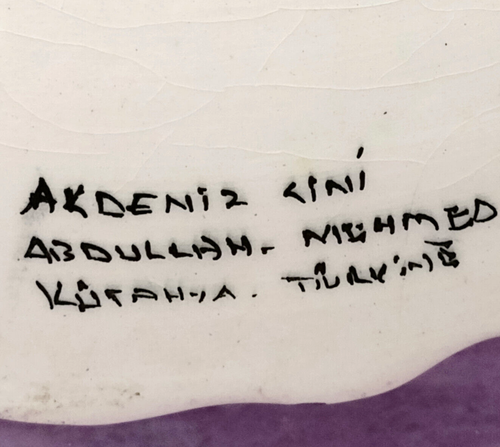 AKDENİZ ÇİNİ
ABDULLAH-
KÜTAHYA. TÜRKİYE